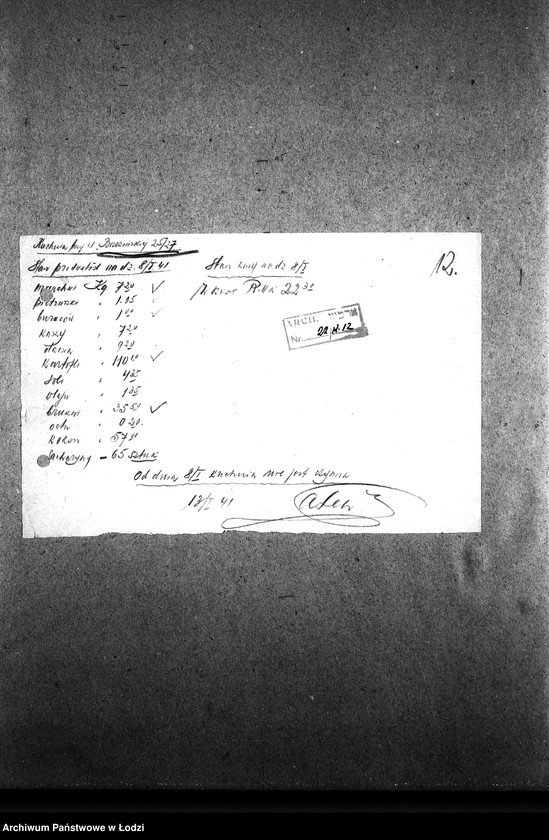 Kuchnia przy ul. Brzezińskiej 25/27
Stan produktów na dz. 8/I 41
Stan kasy na dz. 8/I
12.
marchwi Kg 7 20 ✓
W kasie RMK 22 31
pietruszki " 1.15
buraków " 1 00
kaszy " 7 20
" 9 20
kartofli " 110 00 ✓
soli " 4 35
oleju " 1 35
brukwi " 35 50 ✓
octu " 0 20
" 57 00
sacharyny – 65 sztuk
ARCH.
Nr.
Od dnia 8/I kuchnia nie jest czynna
13/I 41
Archiwum Państwowe w Łodzi